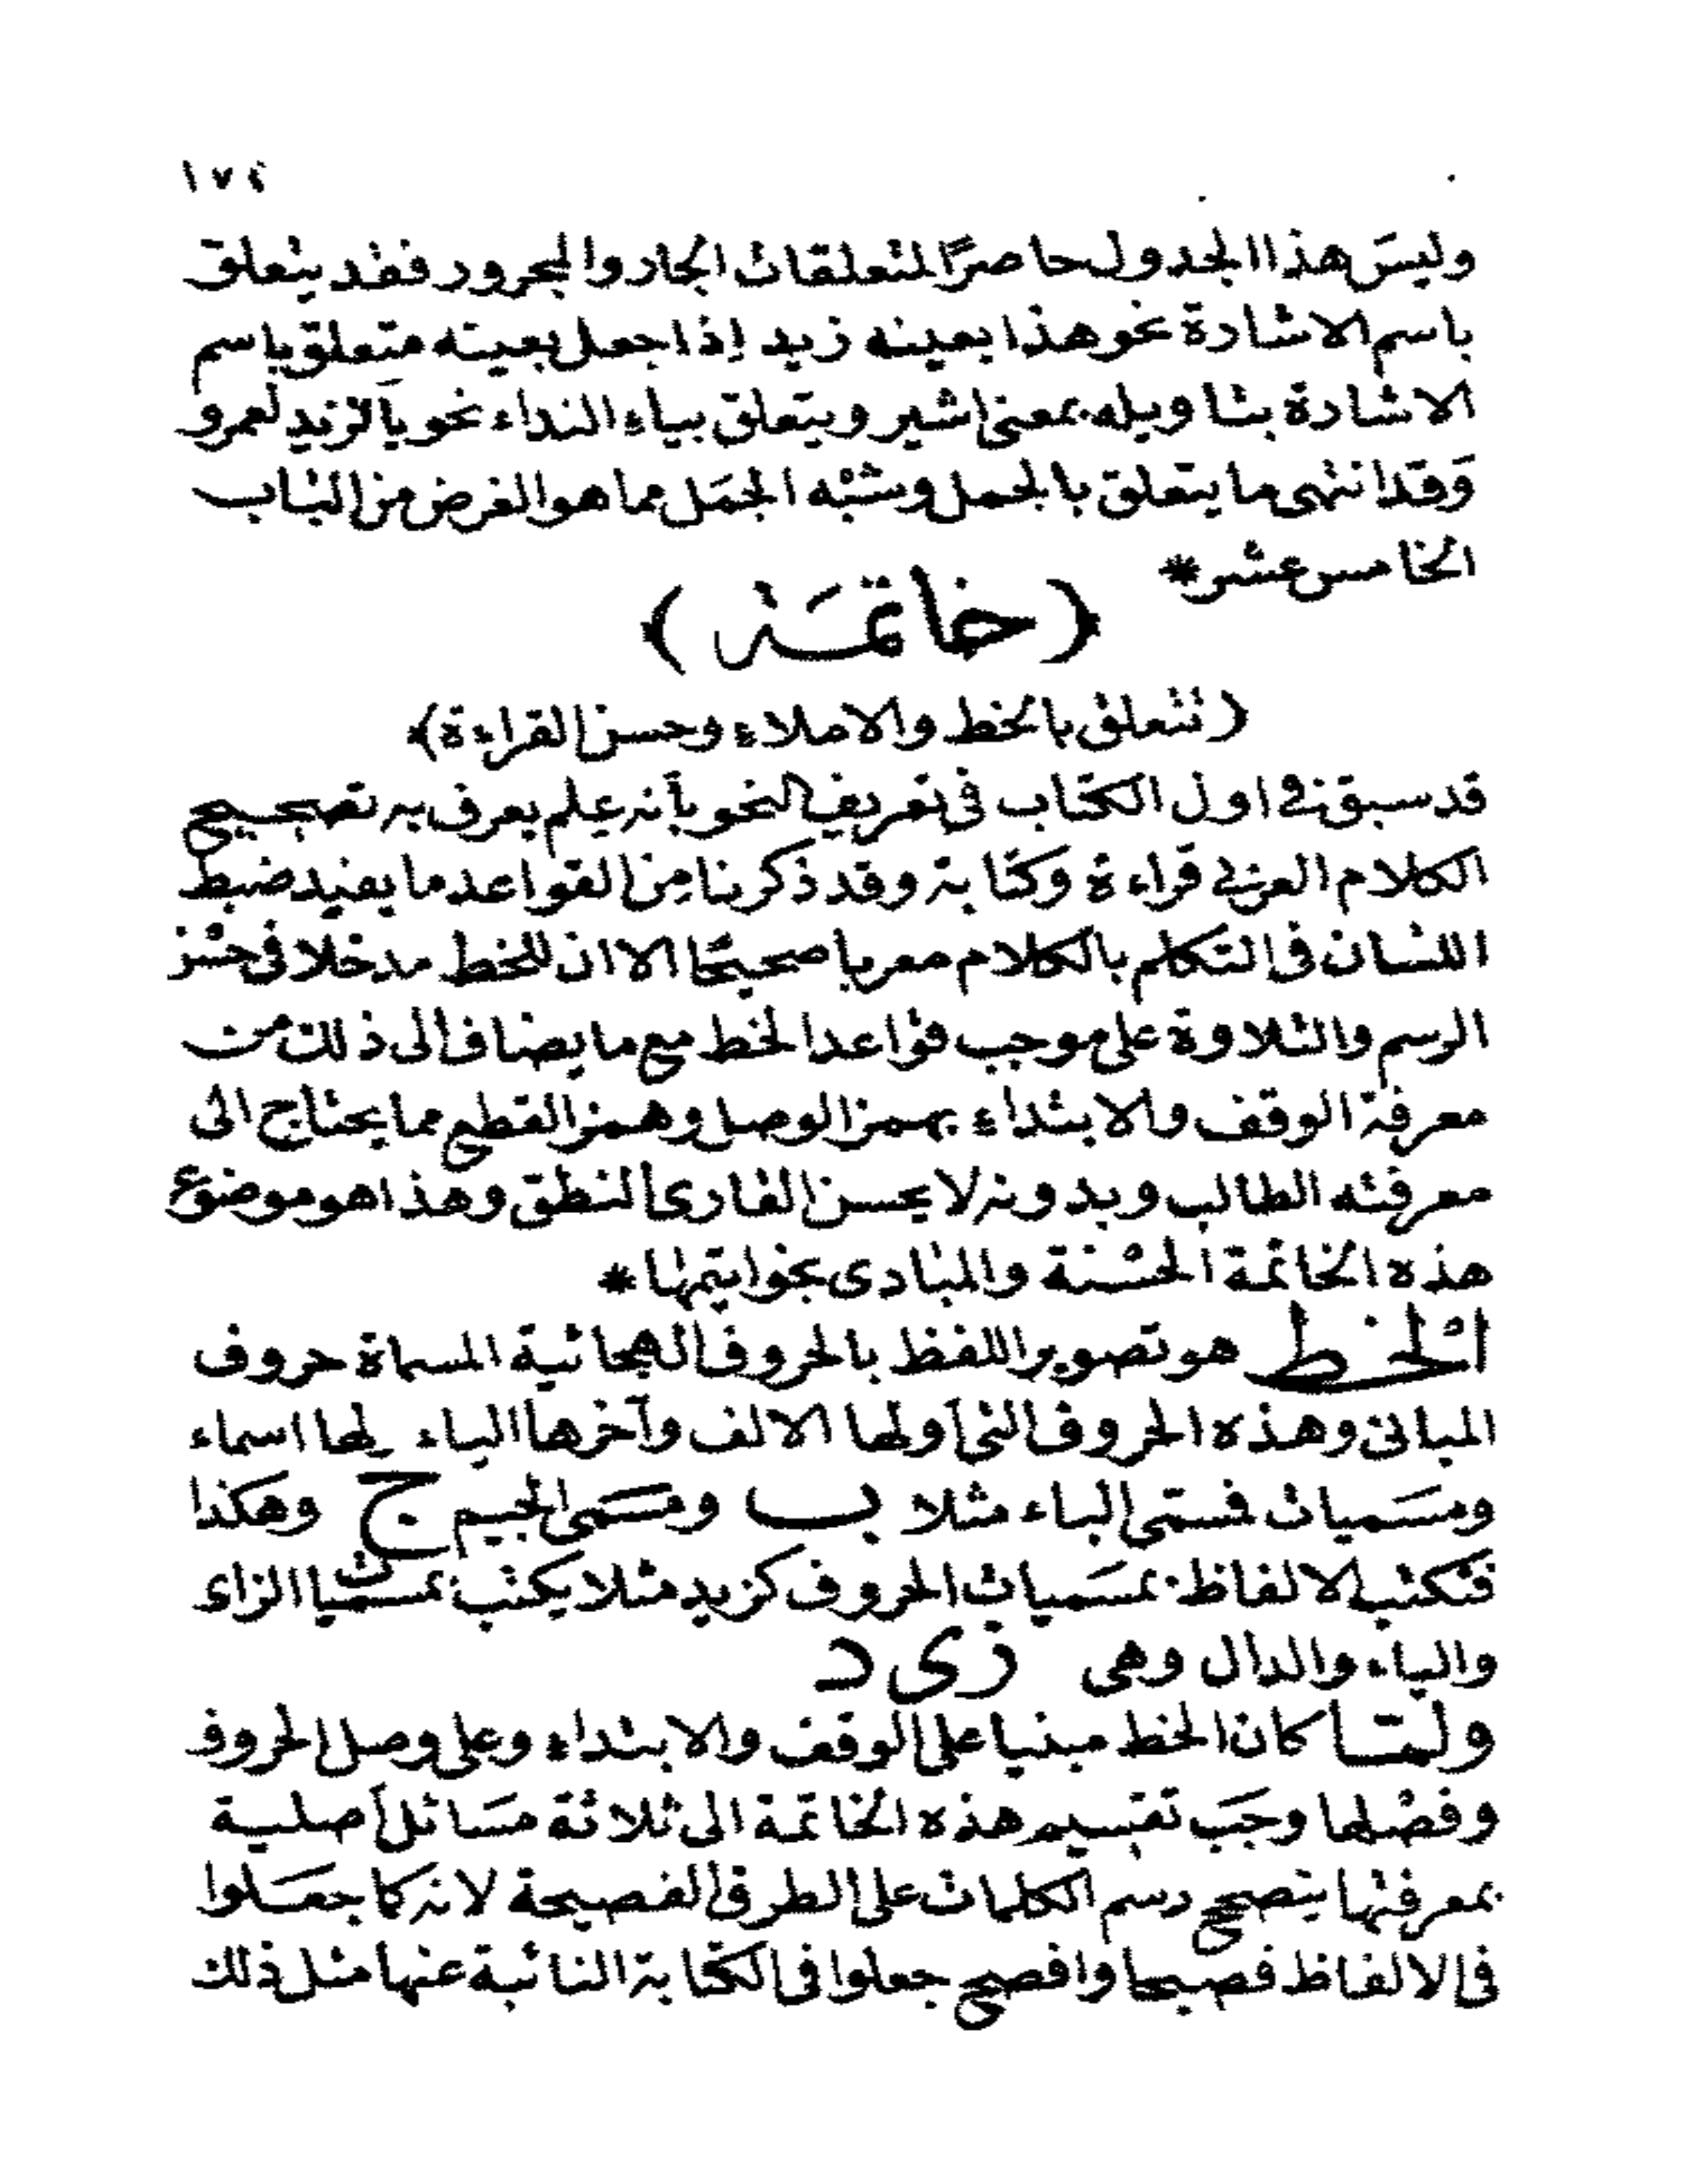 ١٧٤
وليسَ هذا الجدول حاصرًا لمتعلقات الجار والمجرور فقد يتعلق
باسم الاشارة نحو هذا بعينه زيد إذا جعل بعينه متعلق باسم
الاشارة بتاويله بمعنى اشير ويتعلق بياء النداء نحو يا لزيد لعمرو
وَقد انتهى ما يتعلق بالجمل وشبه الجمَل مما هو الغرض من الباب
الخامس عشر *
(خاتمَة)
(تتعلق بالخط والاملاء وحسن القراءة)
قد سبق في اول الكتاب فى تعريف النحو بأنه علم يعرف به تصحيح
الكلام العربى قراءة وكتابة وقد ذكرنا مِن القواعد ما يفيد ضبط
اللسان فى التكلم بالكلام معربا صحيحًا الا ان للخط مدخلا فى حسن
الرسم والتلاوة على موجب قواعد الخط مع ما يضاف الى ذلك من
معرفة الوقف والابتداء بهمز الوصل وهمز القطع مما يحتاج الى
معرفته الطالب وبدونه لا يحسن القارى النطق وهذا هو موضوع
هذه الخاتمة الحسنة والمبادى بخواتيمها *
الخط هو تصوير اللفظ بالحروف الهجائية المسماة حروف
المبانى وهذه الحروف التى أولها الالف وآخرها الياء لها اسماء
ومسَميات فمسمى الباء مثلا ب ومسَمى الجيم ج وهكذا
فتكتب الالفاظ بمسَميات الحروف كزيد مثلا يكتب بمسميات الزاء
والياء والدال وهى زى د
ولمّا كان الخط مبنيا على الوقف والابتداء وعلى وصل الحروف
وفصلها وجَب تقسيم هذه الخاتمة الى ثلاثة مسَائل أصلية
بمعرفتها يتصحح رسم الكلمات على الطرق الفصيحة لانه كما جعَلوا
فى الالفاظ فصيحا وافصح جعلوا فى الكتابة النائبة عنها مثل ذلك